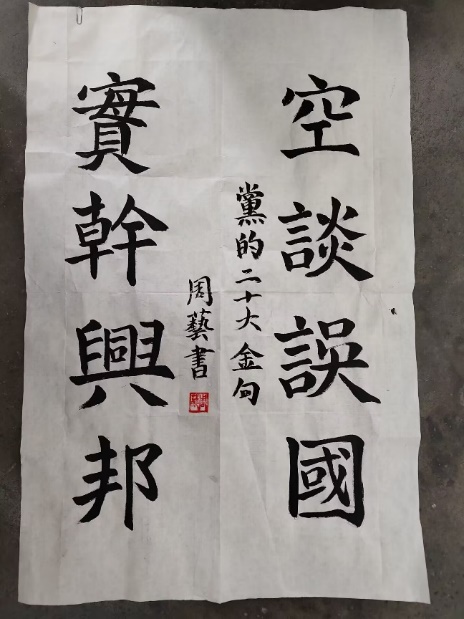 空談誤國
實幹興邦
黨的二十大金句
周藝書